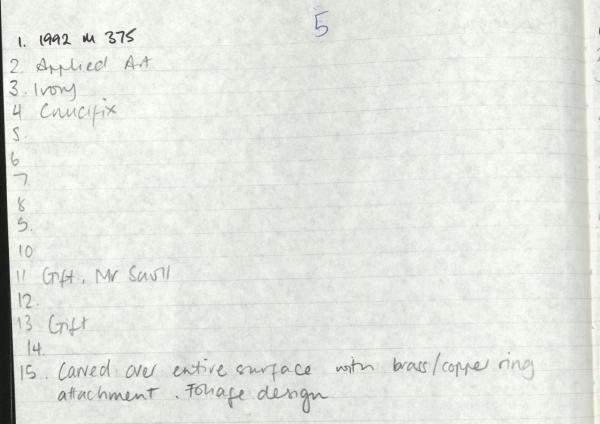 5
1. 1992 M 375
2. Applied Art
3. Ivory
4 Crucifix
5.
6
7.
8
9.
10
11 Gift. Mr Savill
12.
13 Gift
14.
15. Carved over entire surface with brass/copper ring
attachment. Foliage design